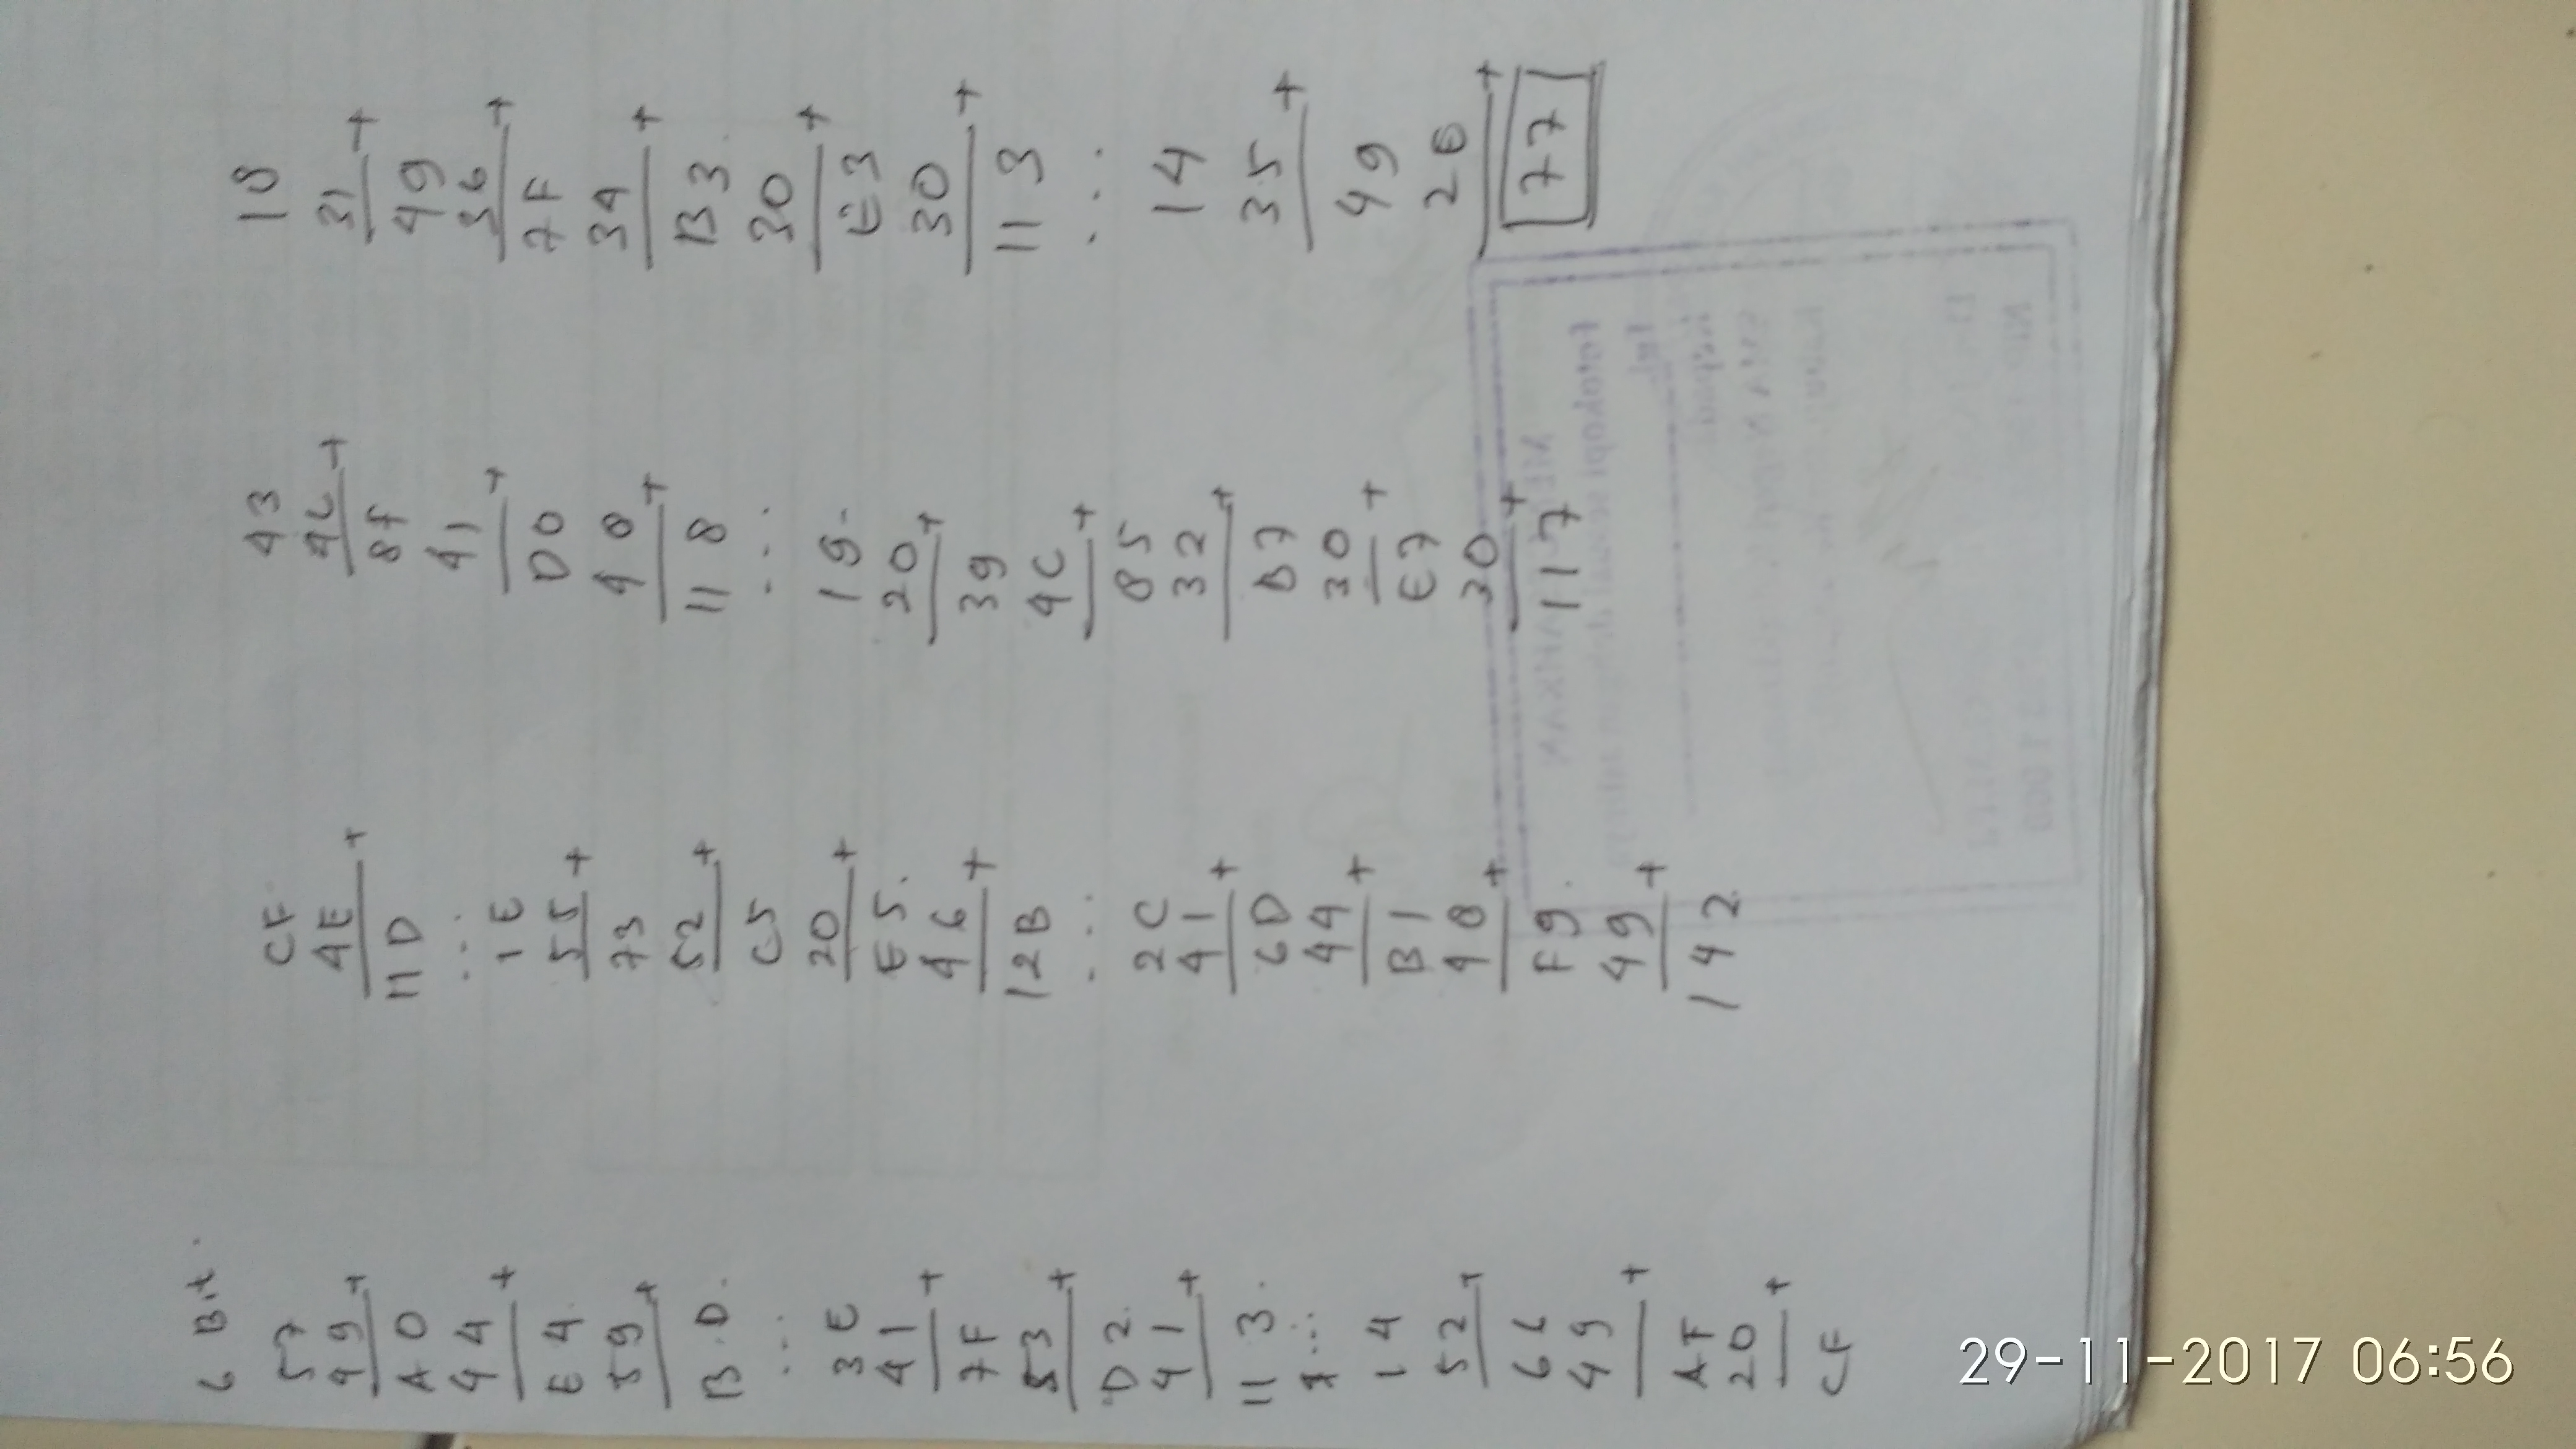 6 Bit.
57
49 +
A0
44 +
E4
59 +
B.D.
∴
3E
41 +
7F
53 +
D2
41 +
113.
14
52 +
66
49 +
AF
20 +
CF
CF
4E +
11D
∴
1E
55 +
73
52 +
C5
20 +
E5.
46 +
12B
∴
2C
41 +
6D
44 +
B1
48 +
F9.
49 +
142
43
4C +
8F
41 +
D0
48 +
118
∴
19
20 +
39
4C +
85
32 +
B7
30 +
E7
30 +
117
18
31 +
49
36 +
7F
34 +
B3
30 +
E3
30 +
113
∴
14
35 +
49
2E +
77
29-11-2017 06:56